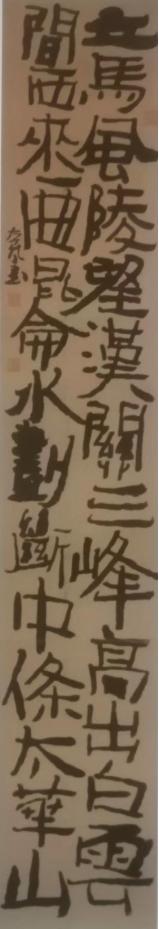 立馬風陵望漢關三峰高出白雲
間西來一曲昆侖水劃斷中條太華山